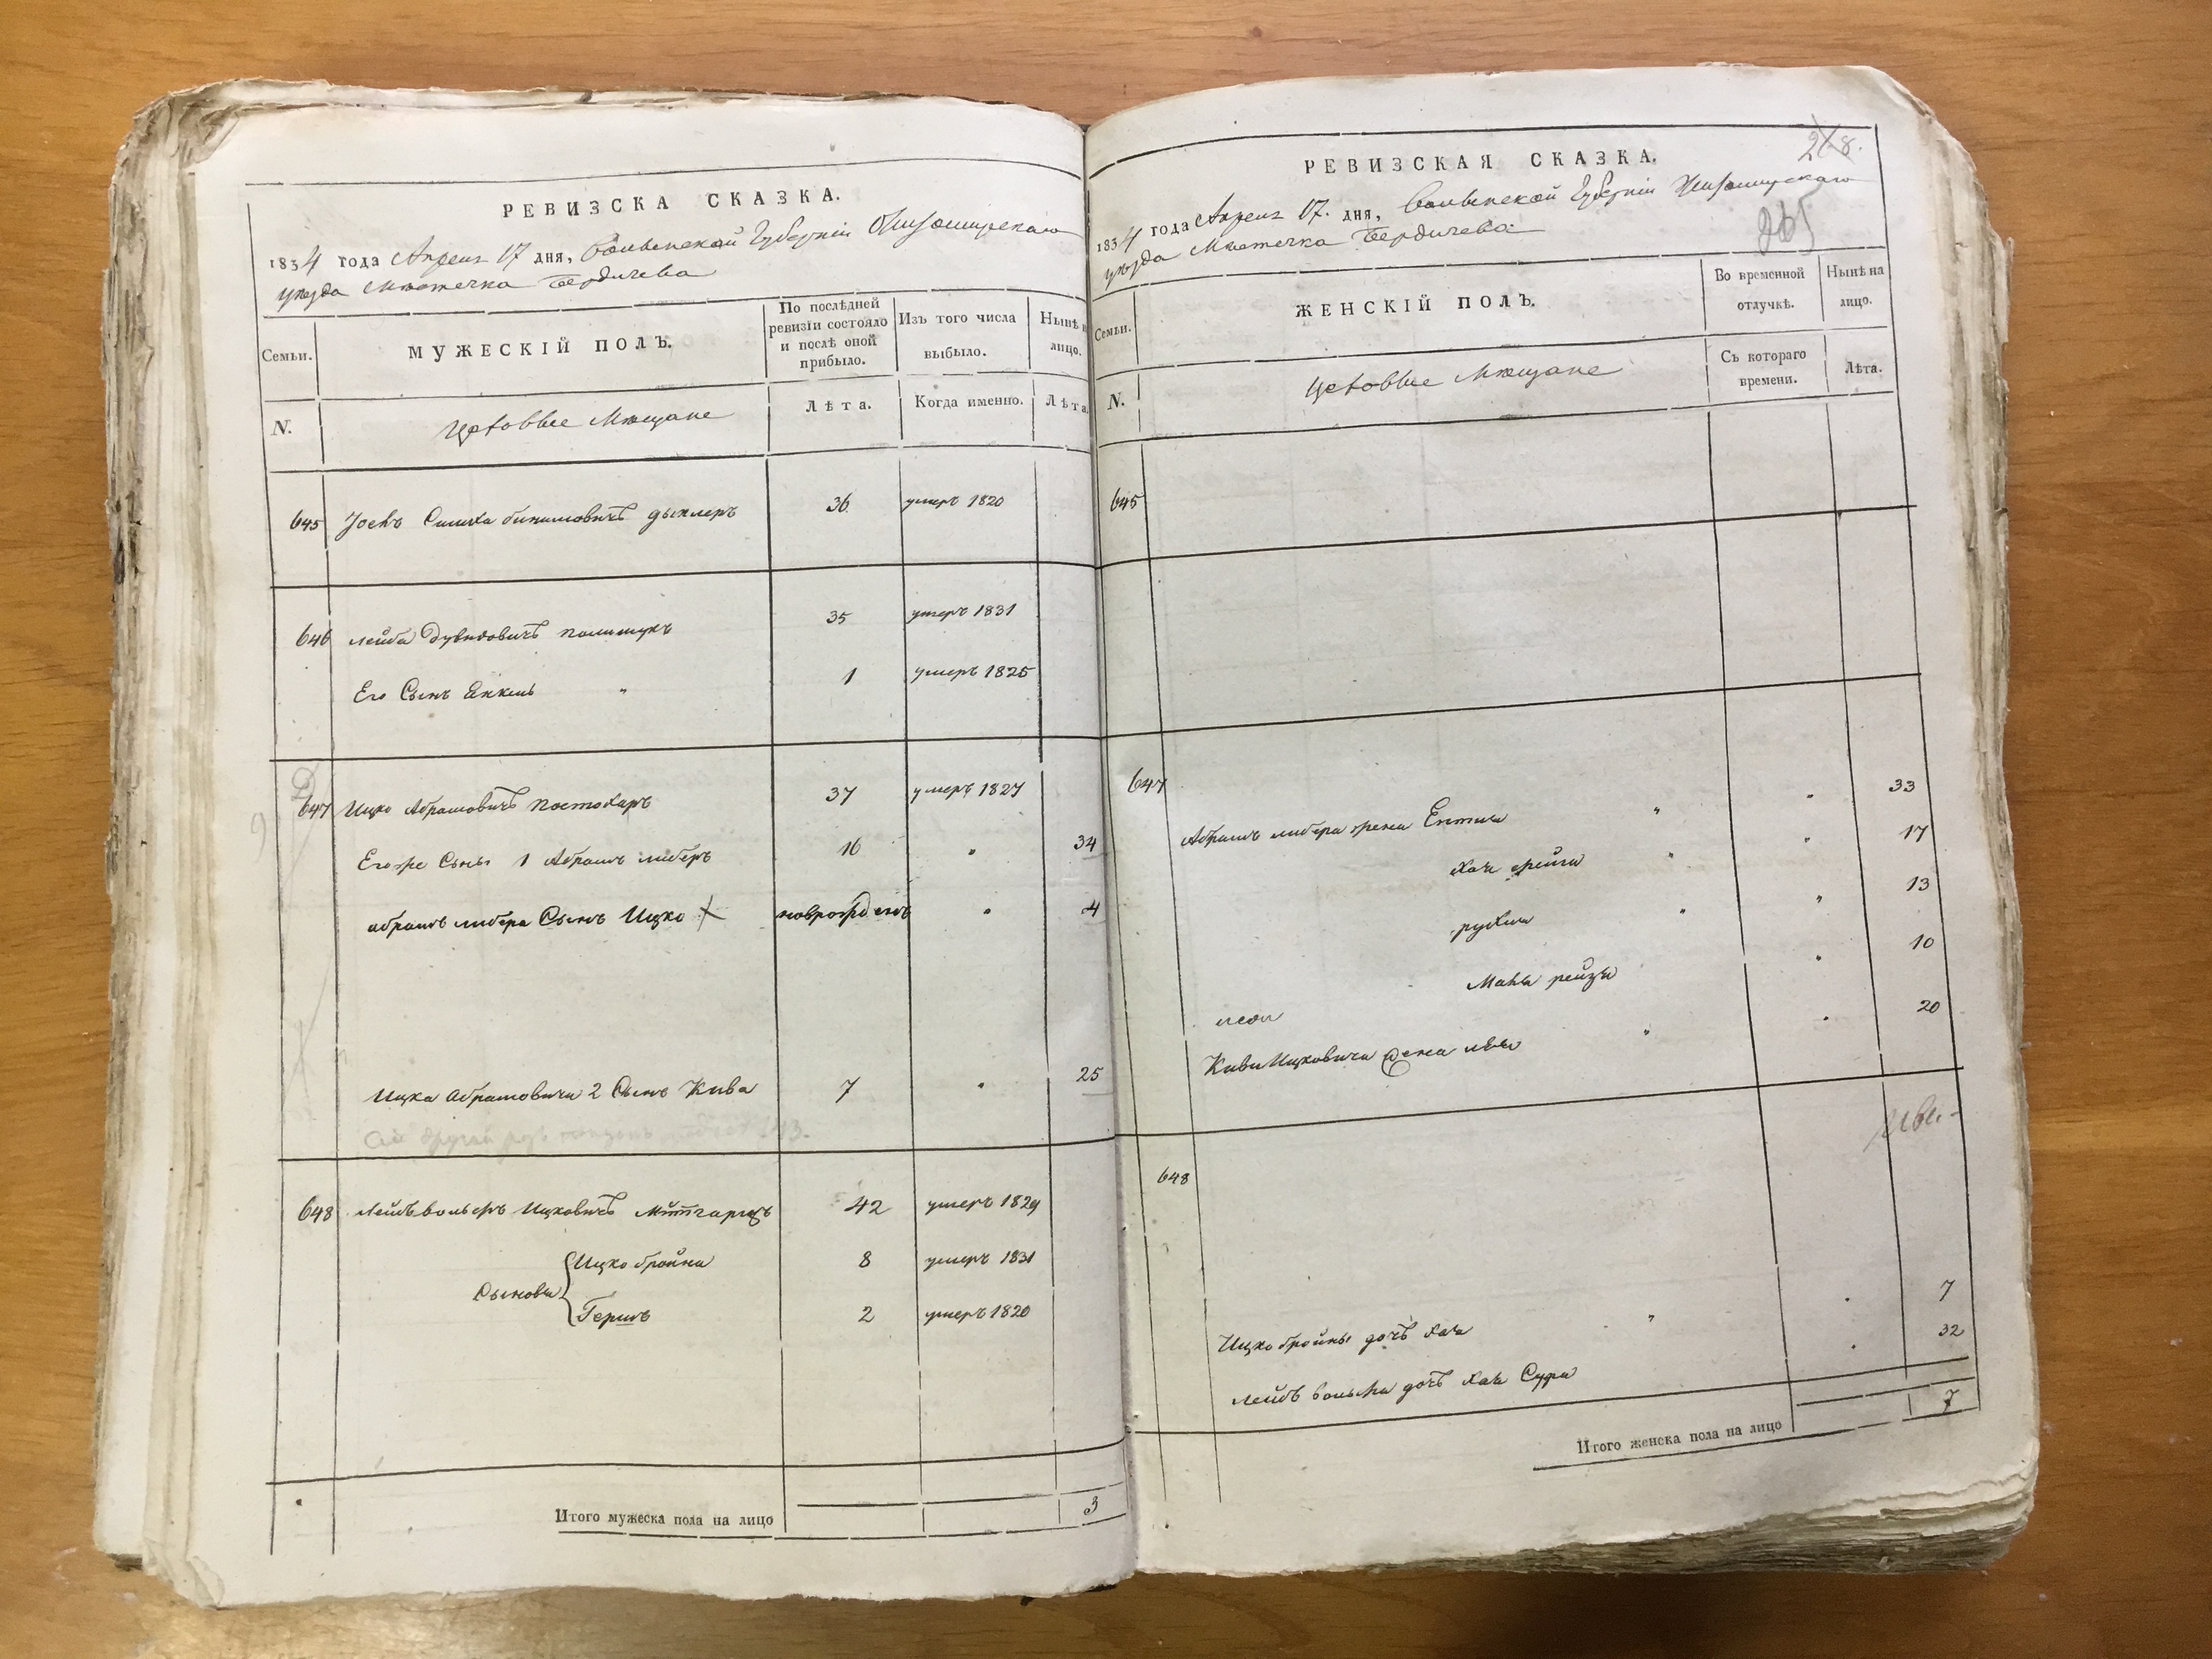 РЕВИЗСКА СКАЗКА.
1834 года Апреля 17 дня, Волынской Губернии Житомирскаго
уезда Местечка Бердичева
Семьи.
МУЖЕСКІЙ ПОЛЪ.
По послѣдней ревизіи состояло и послѣ оной прибыло.
Изъ того числа выбыло.
Нынѣ лицо.
N.
Цеховые Мещане
Лѣта.
Когда именно.
Лѣта
645 Іосъ Симха дыхлеръ 36 умеръ 1820
646 Лейба Дувидовичъ полищукъ 35 умеръ 1831
Его Сынъ Янкель " 1 умеръ 1825
647 Ицко Абрамовичъ Постохаръ 37 умеръ 1827
Его же Сыны 1 Абрамъ либеръ 16 " 34
абрамъ либера Сынъ Ицко новрожденъ " 4
Ицка Абрамовича 2 Сынъ Кива 7 " 25
648 Лейбъ вольфъ Ицковичъ 42 умеръ 1829
Сыновья
Ицко бройна 8 умеръ 1831
Гершъ 2 умеръ 1820
Итого мужеска пола на лицо 3
РЕВИЗСКАЯ СКАЗКА.
268.
265
1834 года Апреля 17. дня, Волынской Губерніи Житомирскаго
уезда Местечка Бердичева
Семьи.
ЖЕНСКІЙ ПОЛЪ.
Во временной отлучкѣ.
Нынѣ на лицо.
N.
Цеховые Мещане
Съ котораго времени.
Лѣта.
645
647
Абрамъ либера жена Ентля " " 33
хая фейга " " 17
рухля " " 13
Маня рейзя " 10
Киви Ицковича жена " " 20
648
Ицко бройны дочъ хая " " 7
Лейбъ вольфа дочъ хая Сура " 32
Итого женска пола на лицо 7